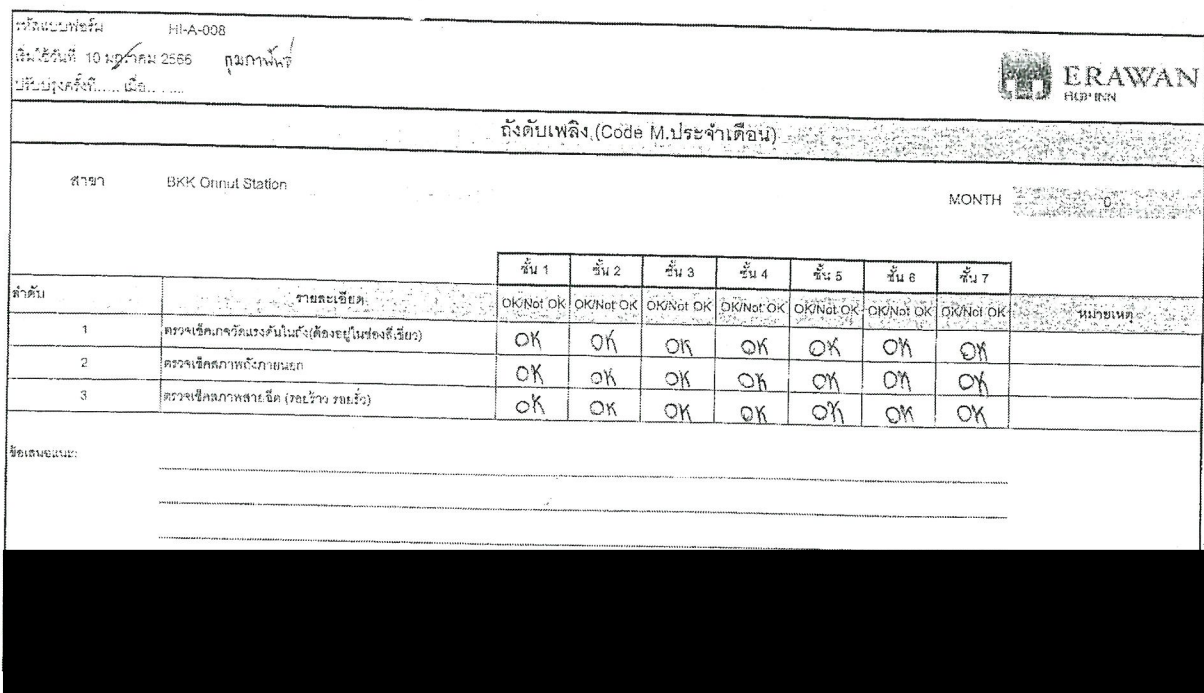 รหัสแบบฟอร์ม HI-A-008
เริ่มใช้วันที่ 10 มกราคม 2566 กุมภาพันธ์
ปรับปรุงครั้งที่...... เมื่อ.........
ERAWAN
HOP INN
ถังดับเพลิง (Code M.ประจำเดือน)
สาขา BKK Onnut Station
MONTH 0
ชั้น 1 ชั้น 2 ชั้น 3 ชั้น 4 ชั้น 5 ชั้น 6 ชั้น 7
ลำดับ รายละเอียด OK/Not OK OK/Not OK OK/Not OK OK/Not OK OK/Not OK OK/Not OK OK/Not OK หมายเหตุ
1 ตรวจเช็คเกจวัดแรงดันในถัง(ต้องอยู่ในช่องสีเขียว) OK OK OK OK OK OK OK
2 ตรวจเช็คสภาพถังภายนอก OK OK OK OK OK OK OK
3 ตรวจเช็คสภาพสายฉีด (รอยร้าว รอยรั่ว) OK OK OK OK OK OK OK
ข้อเสนอแนะ: